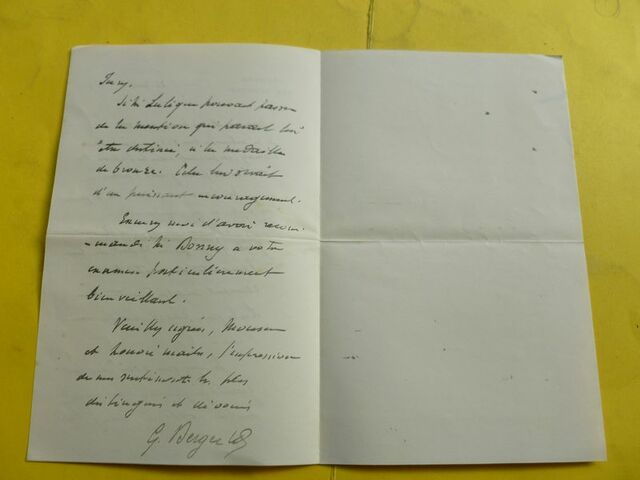 Jury.
Si M. Lelique pouvait passer
de la mention qui paraît lui
être destinée, à la médaille
de bronze. Cela lui serait
d'un puissant encouragement.
Excusez moi d'avoir recom-
-mandé M. Bonny a votre
examen particulièrement
bienveillant.
Veuillez agréer, Monsieur
et honoré maître, l'expression
de mes sentiments les plus
distingués et dévoués
G. Berger